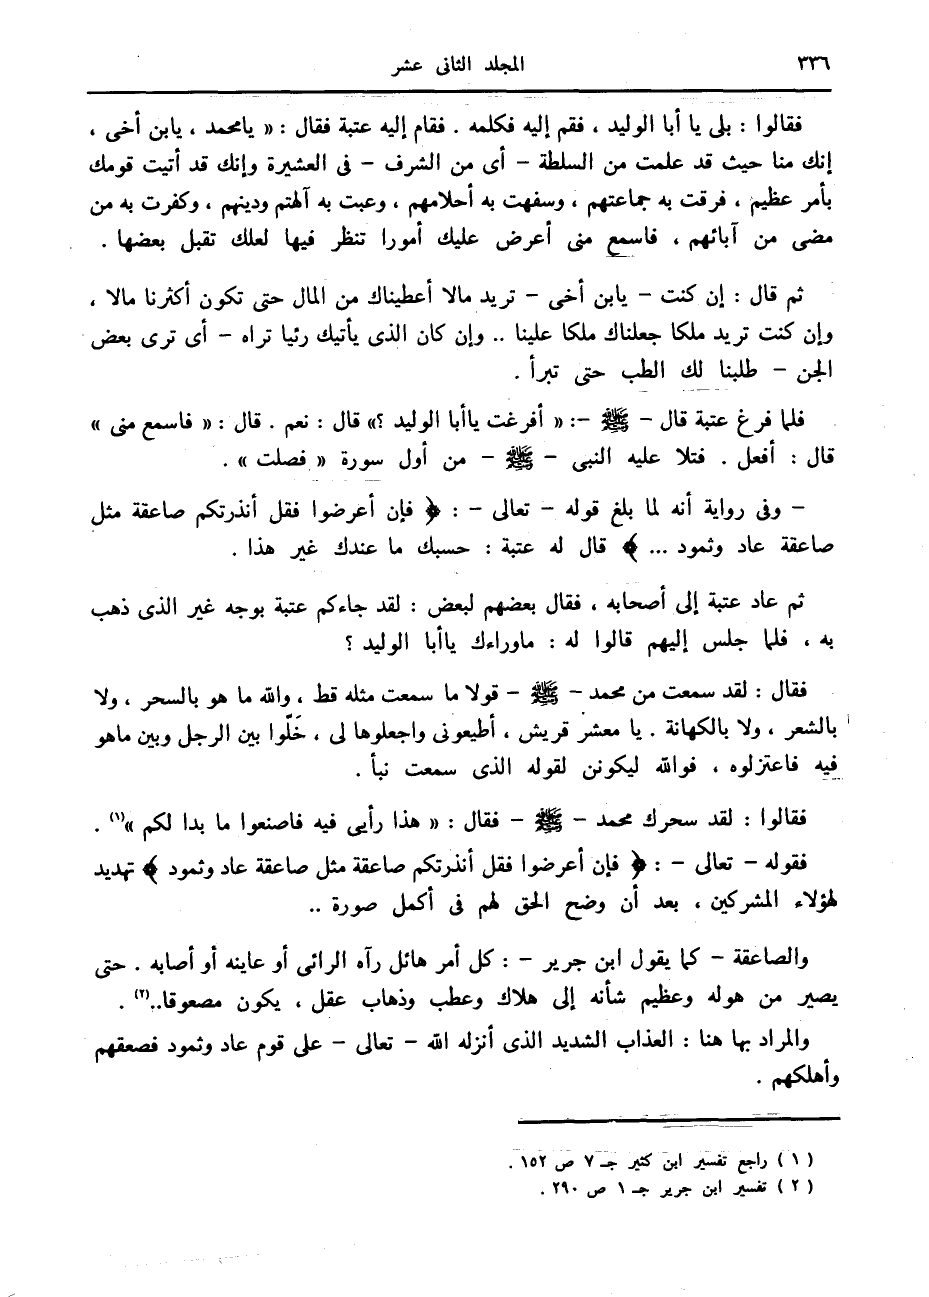 ٣٣٦ المجلد الثانى عشر
فقالوا : بلى يا أبا الوليد ، فقم إليه فكلمه . فقام إليه عتبة فقال : « يامحمد ، يابن أخى ،
إنك منا حيث قد علمت من السلطة – أى من الشرف – فى العشيرة وإنك قد أتيت قومك
بأمر عظيم ، فرقت به جماعتهم ، وسفهت به أحلامهم ، وعبت به آلهتم ودينهم ، وكفرت به من
مضى من آبائهم ، فاسمع منى أعرض عليك أمورا تنظر فيها لعلك تقبل بعضها .
ثم قال : إن كنت – يابن أخى – تريد مالا أعطيناك من المال حتى تكون أكثرنا مالا ،
وإن كنت تريد ملكا جعلناك ملكا علينا .. وإن كان الذى يأتيك رئيا تراه – أى ترى بعض
الجن – طلبنا لك الطب حتى تبرأ .
فلما فرغ عتبة قال – ﷺ –: « أفرغت ياأبا الوليد ؟» قال : نعم . قال : « فاسمع منى »
قال : أفعل . فتلا عليه النبى – ﷺ – من أول سورة « فصلت » .
– وفى رواية أنه لما بلغ قوله – تعالى – : ﴿ فإن أعرضوا فقل أنذرتكم صاعقة مثل
صاعقة عاد وثمود ... ﴾ قال له عتبة : حسبك ما عندك غير هذا .
ثم عاد عتبة إلى أصحابه ، فقال بعضهم لبعض : لقد جاءكم عتبة بوجه غير الذى ذهب
به ، فلما جلس إليهم قالوا له : ماوراءك ياأبا الوليد ؟
فقال : لقد سمعت من محمد – ﷺ – قولا ما سمعت مثله قط ، والله ما هو بالسحر ، ولا
بالشعر ، ولا بالكهانة . يا معشر قريش ، أطيعونى واجعلوها لى ، خَلّوا بين الرجل وبين ماهو
فيه فاعتزلوه ، فوالله ليكونن لقوله الذى سمعت نبأ .
فقالوا : لقد سحرك محمد – ﷺ – فقال : « هذا رأيى فيه فاصنعوا ما بدا لكم »(١) .
فقوله – تعالى – : ﴿ فإن أعرضوا فقل أنذرتكم صاعقة مثل صاعقة عاد وثمود ﴾ تهديد
لهؤلاء المشركين ، بعد أن وضح الحق لهم فى أكمل صورة ..
والصاعقة – كما يقول ابن جرير – : كل أمر هائل رآه الرائى أو عاينه أو أصابه . حتى
يصير من هوله وعظيم شأنه إلى هلاك وعطب وذهاب عقل ، يكون مصعوقا..(٢) .
والمراد بها هنا : العذاب الشديد الذى أنزله الله – تعالى – على قوم عاد وثمود فصعقهم
وأهلكهم .
( ١ ) راجع تفسير ابن كثير جـ ٧ ص ١٥٢ .
( ٢ ) تفسير ابن جرير جـ ١ ص ٢٩٠ .